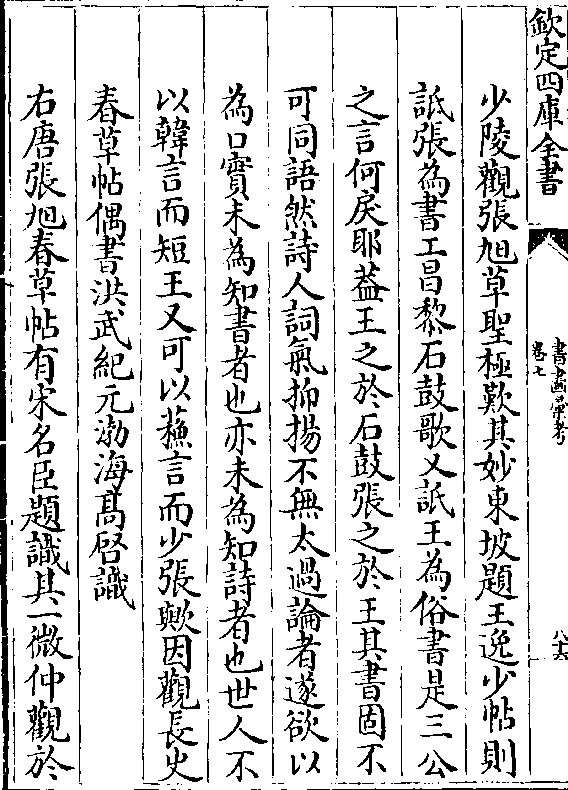 欽定四庫全書
書畫彙考
卷七
八十六
少陵觀張旭草聖極歎其妙東坡題王逸少帖則
詆張為書工昌黎石鼓歌又詆王為俗書是三公
之言何戾耶葢王之於石鼓張之於王其書固不
可同語然詩人詞氣抑揚不無太過論者遂欲以
為口實未為知書者也亦未為知詩者也世人不
以韓言而短王又可以蘓言而少張歟因觀長史
春草帖偶書洪武紀元渤海髙啓識
右唐張旭春草帖有宋名臣題識其一微仲觀於